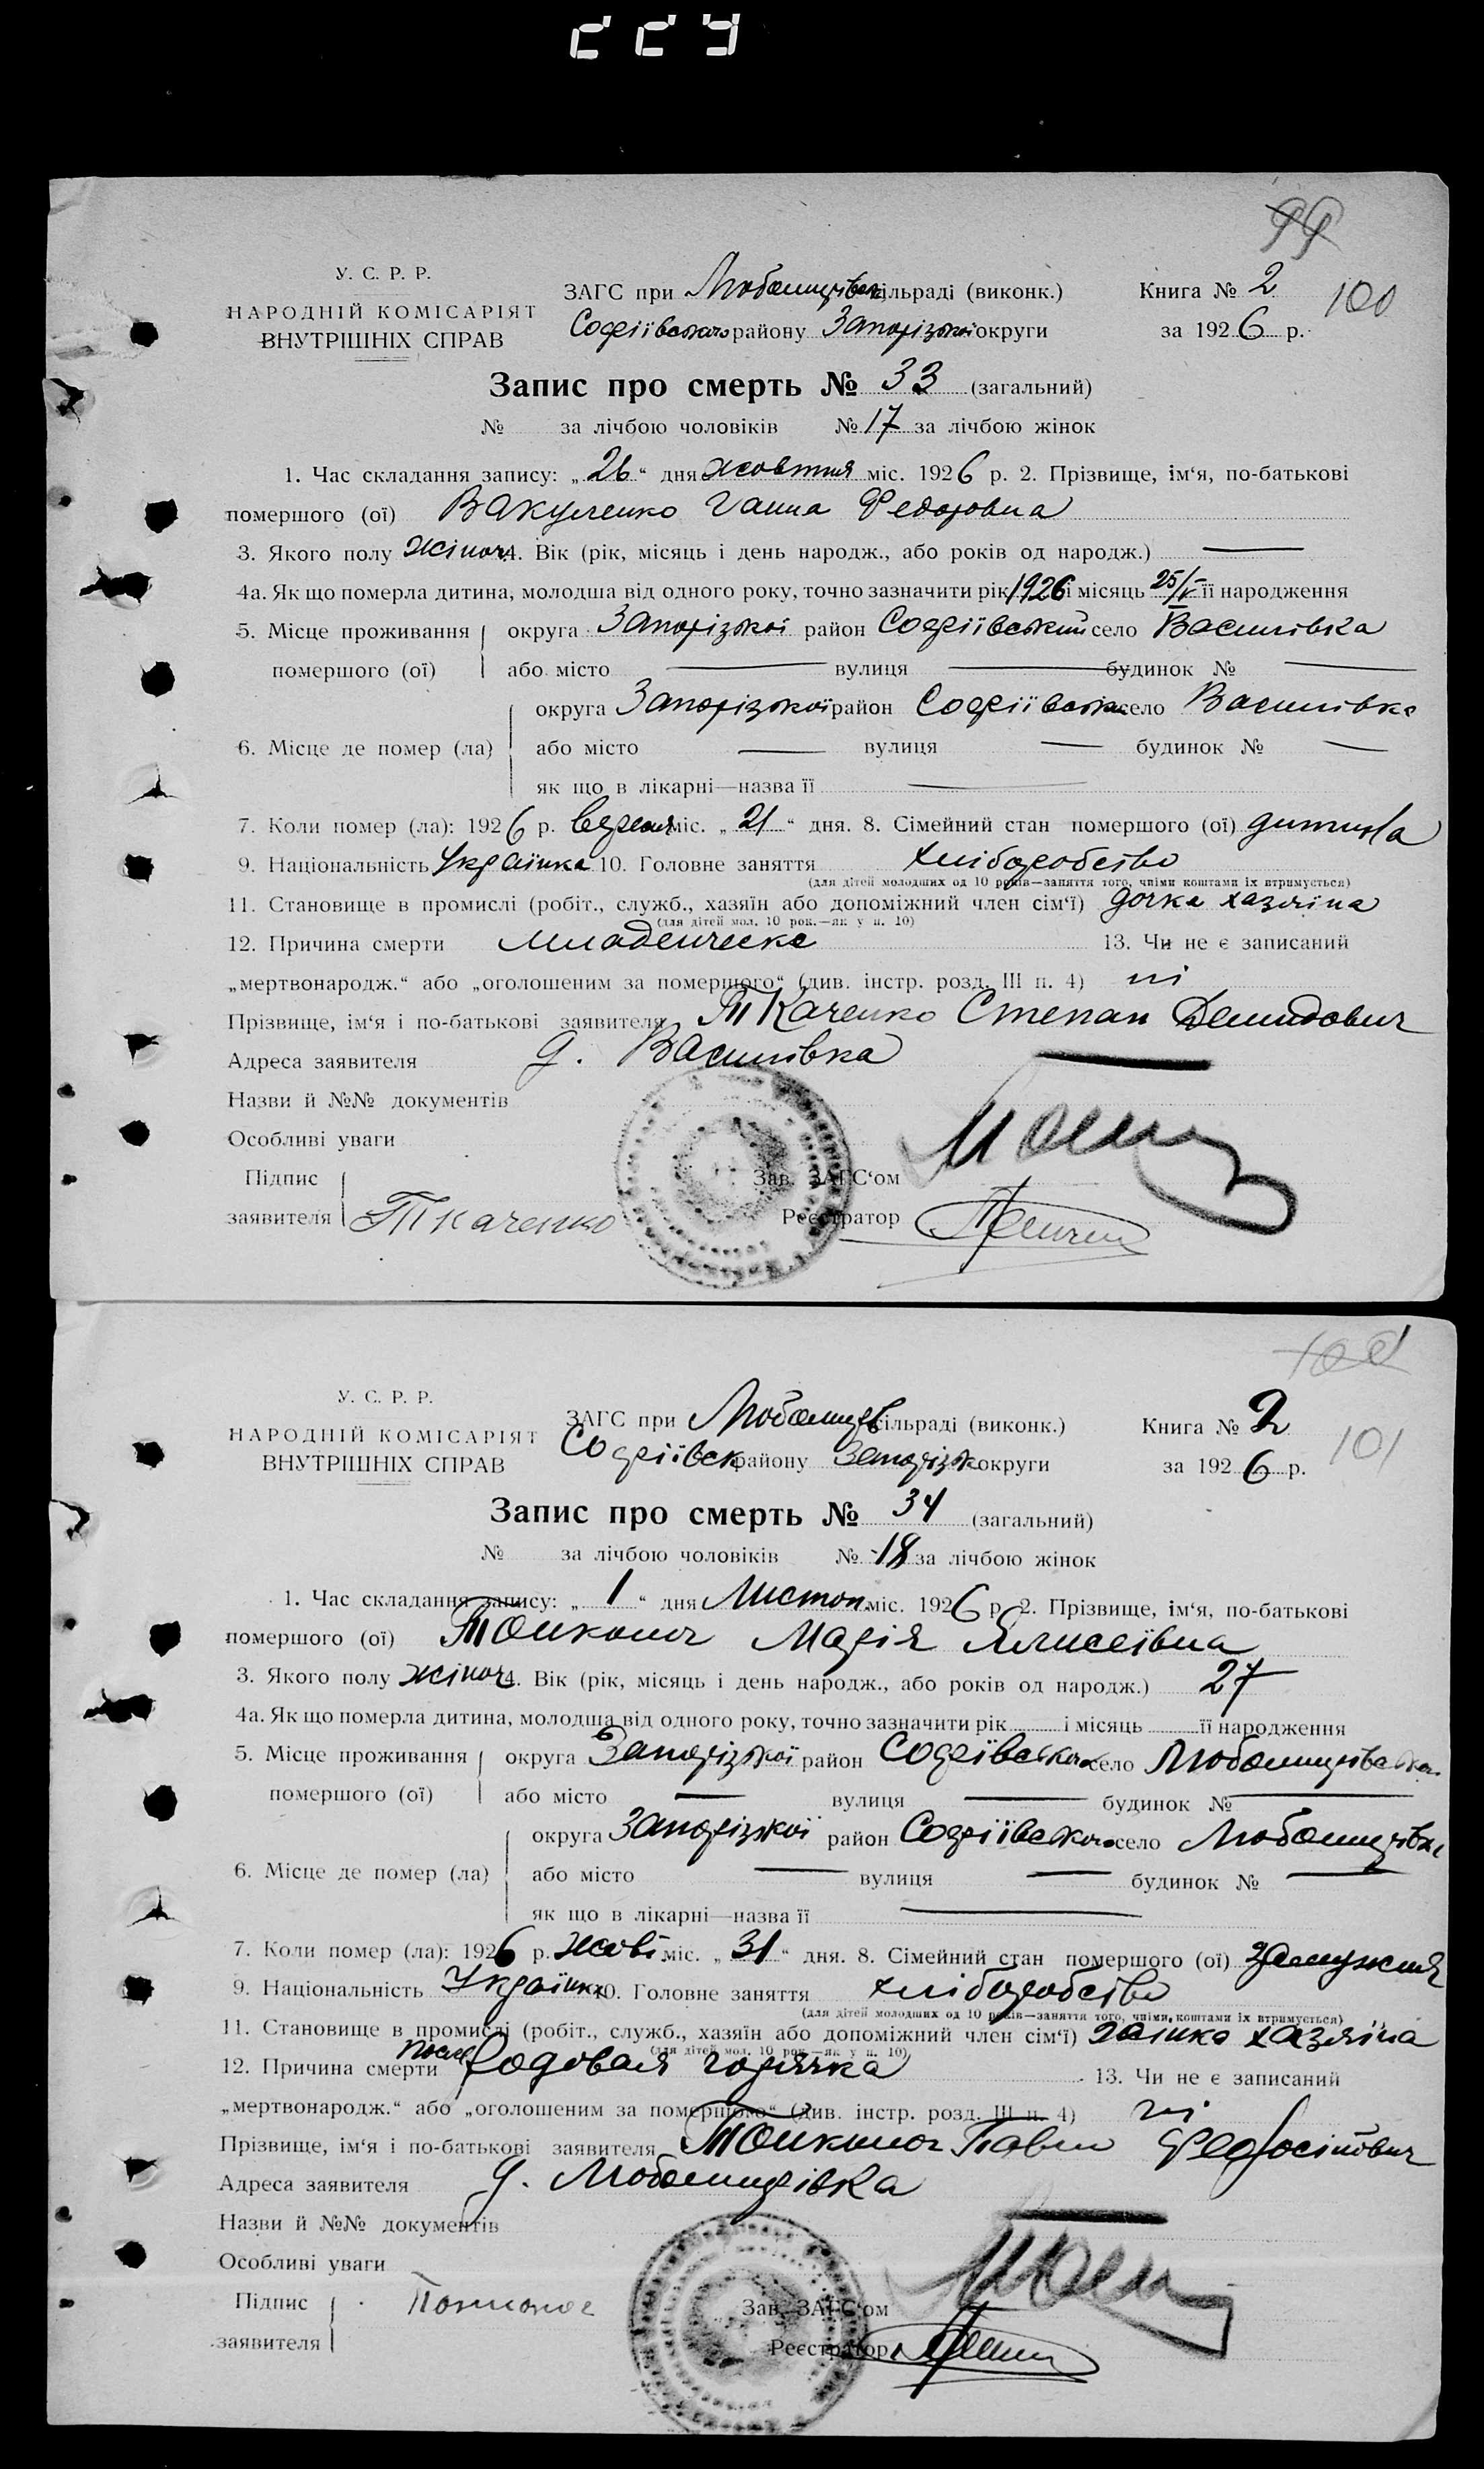 99
У. С. Р. Р.
НАРОДНІЙ КОМІСАРІЯТ
ВНУТРІШНІХ СПРАВ
ЗАГС при Любомирівськ. сільраді (виконк.)
Софіївського району Запорізької округи
Книга № 2
за 1926 р.
100
Запис про смерть № 33 (загальний)
№ за лічбою чоловіків № 17 за лічбою жінок
1. Час складання запису: „26“ дня жовтня міс. 1926 р. 2. Прізвище, ім‘я, по-батькові
помершого (ої) Вакуленко Ганна Федоровна
3. Якого полу жіноч. 4. Вік (рік, місяць і день народж., або років од народж.) —
4а. Як що померла дитина, молодша від одного року, точно зазначити рік 1926 і місяць 25/V її народження
5. Місце проживання помершого (ої) округа Запорізької район Софіївський село Василівка
або місто — вулиця — будинок № —
6. Місце де помер (ла) округа Запорізької район Софіївськ село Василівка
або місто — вулиця — будинок № —
як що в лікарні—назва її —
7. Коли помер (ла): 1926 р. вересня міс. „21“ дня. 8. Сімейний стан помершого (ої) дитина
9. Національність Українка 10. Головне заняття хліборобство
(для дітей молодших од 10 років—заняття того, чиїми коштами їх втримується)
11. Становище в промислі (робіт., служб., хазяїн або допоміжний член сім‘ї) дочка хазяіна
(для дітей мол. 10 рок.—як у п. 10)
12. Причина смерти младенческа 13. Чи не є записаний
„мертвонародж.“ або „оголошеним за помершого“ (див. інстр. розд. III п. 4) ні
Прізвище, ім‘я і по-батькові заявителя Ткаченко Степан Демидович
Адреса заявителя д. Василівка
Назви й №№ документів
Особливі уваги
Підпис заявителя Ткаченко
Зав. ЗАГС‘ом
Реєстратор
100
У. С. Р. Р.
НАРОДНІЙ КОМІСАРІЯТ
ВНУТРІШНІХ СПРАВ
ЗАГС при Любомирів сільраді (виконк.)
Софіївськ району Запорізьк округи
Книга № 2
за 1926 р.
101
Запис про смерть № 34 (загальний)
№ за лічбою чоловіків № 18 за лічбою жінок
1. Час складання запису: „1“ дня Листоп. міс. 1926 р. 2. Прізвище, ім‘я, по-батькові
помершого (ої) Марія Елисеївна
3. Якого полу жіноч 4. Вік (рік, місяць і день народж., або років од народж.) 27
4а. Як що померла дитина, молодша від одного року, точно зазначити рік і місяць її народження
5. Місце проживання помершого (ої) округа Запорізької район Софіївського село
або місто — вулиця — будинок № —
6. Місце де помер (ла) округа Запорізької район Софіївського село Любомирівка
або місто — вулиця — будинок № —
як що в лікарні—назва її —
7. Коли помер (ла): 1926 р. жовт міс. „31“ дня. 8. Сімейний стан помершого (ої) замужня
9. Національність Українка 10. Головне заняття хліборобство
(для дітей молодших од 10 років—заняття того, чиїми коштами їх втримується)
11. Становище в промислі (робіт., служб., хазяїн або допоміжний член сім‘ї) жінка хазяїна
(для дітей мол. 10 рок.—як у п. 10)
12. Причина смерти Послеродовая горячка 13. Чи не є записаний
„мертвонародж.“ або „оголошеним за помершого“ (див. інстр. розд. III п. 4) ні
Прізвище, ім‘я і по-батькові заявителя Павло
Адреса заявителя д. Любомирівка
Назви й №№ документів
Особливі уваги
Підпис заявителя
Зав. ЗАГС‘ом
Реєстратор